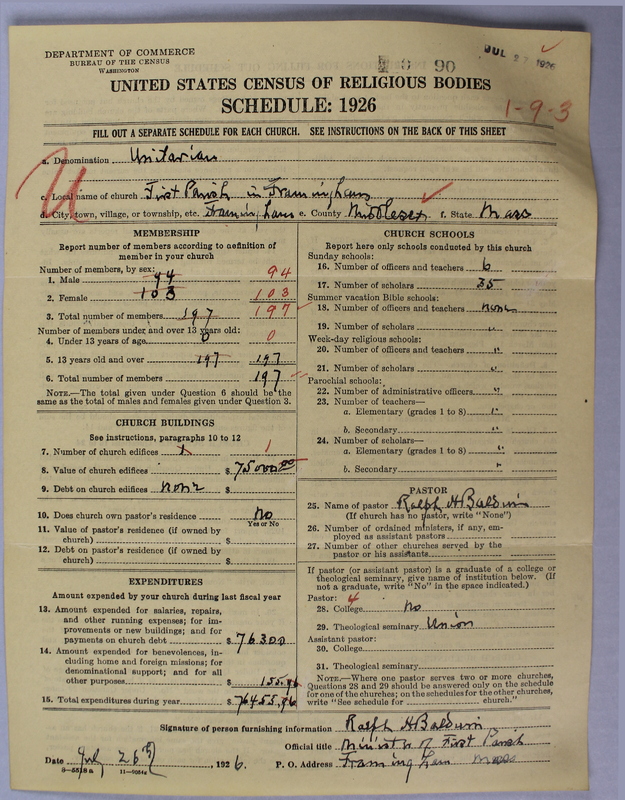 DEPARTMENT OF COMMERCE
BUREAU OF THE CENSUS
WASHINGTON
90
JUL 27 1926
UNITED STATES CENSUS OF RELIGIOUS BODIES
SCHEDULE: 1926
1-9-3
FILL OUT A SEPARATE SCHEDULE FOR EACH CHURCH. SEE INSTRUCTIONS ON THE BACK OF THIS SHEET
a. Denomination Unitarian
U
c. Local name of church First Parish in Framingham
d. City, town, village, or township, etc. Framingham e. County Middlesex f. State Mass
MEMBERSHIP
Report number of members according to definition of
member in your church
Number of members, by sex:
1. Male 94 94
2. Female 103 103
3. Total number of members 197 197
Number of members under and over 13 years old:
4. Under 13 years of age 0 0
5. 13 years old and over 197 197
6. Total number of members 197
NOTE.—The total given under Question 6 should be the
same as the total of males and females given under Question 3.
CHURCH BUILDINGS
See instructions, paragraphs 10 to 12
7. Number of church edifices 1 1
8. Value of church edifices $ 75000.00
9. Debt on church edifices none $
10. Does church own pastor's residence? No
Yes or No
11. Value of pastor's residence (if owned by
church) $
12. Debt on pastor's residence (if owned by
church) $
EXPENDITURES
Amount expended by your church during last fiscal year
13. Amount expended for salaries, repairs,
and other running expenses; for im-
provements or new buildings; and for
payments on church debt $ 76300
14. Amount expended for benevolences, in-
cluding home and foreign missions; for
denominational support; and for all
other purposes $ 155.96
15. Total expenditures during year $ 76455.96
CHURCH SCHOOLS
Report here only schools conducted by this church
Sunday schools:
16. Number of officers and teachers 6
17. Number of scholars 35
Summer vacation Bible schools:
18. Number of officers and teachers none
19. Number of scholars "
Week-day religious schools:
20. Number of officers and teachers "
21. Number of scholars "
Parochial schools:
22. Number of administrative officers "
23. Number of teachers—
a. Elementary (grades 1 to 8) "
b. Secondary "
24. Number of scholars—
a. Elementary (grades 1 to 8) "
b. Secondary "
PASTOR
25. Name of pastor Ralph H Baldwin
(If church has no pastor, write "None")
26. Number of ordained ministers, if any, em-
ployed as assistant pastors
27. Number of other churches served by the
pastor or his assistants
If pastor (or assistant pastor) is a graduate of a college or
theological seminary, give name of institution below. (If
not a graduate, write "No" in the space indicated.)
Pastor: 4
28. College No
29. Theological seminary Union
Assistant pastor:
30. College
31. Theological seminary
NOTE.—Where one pastor serves two or more churches,
Questions 28 and 29 should be answered only on the schedule
for one of the churches; on the schedules for the other churches,
write "See schedule for church."
Signature of person furnishing information Ralph H Baldwin
Official title Minister of First Parish
Date July 26th, 1926. P. O. Address Framingham Mass
8—5518a 11—9054a